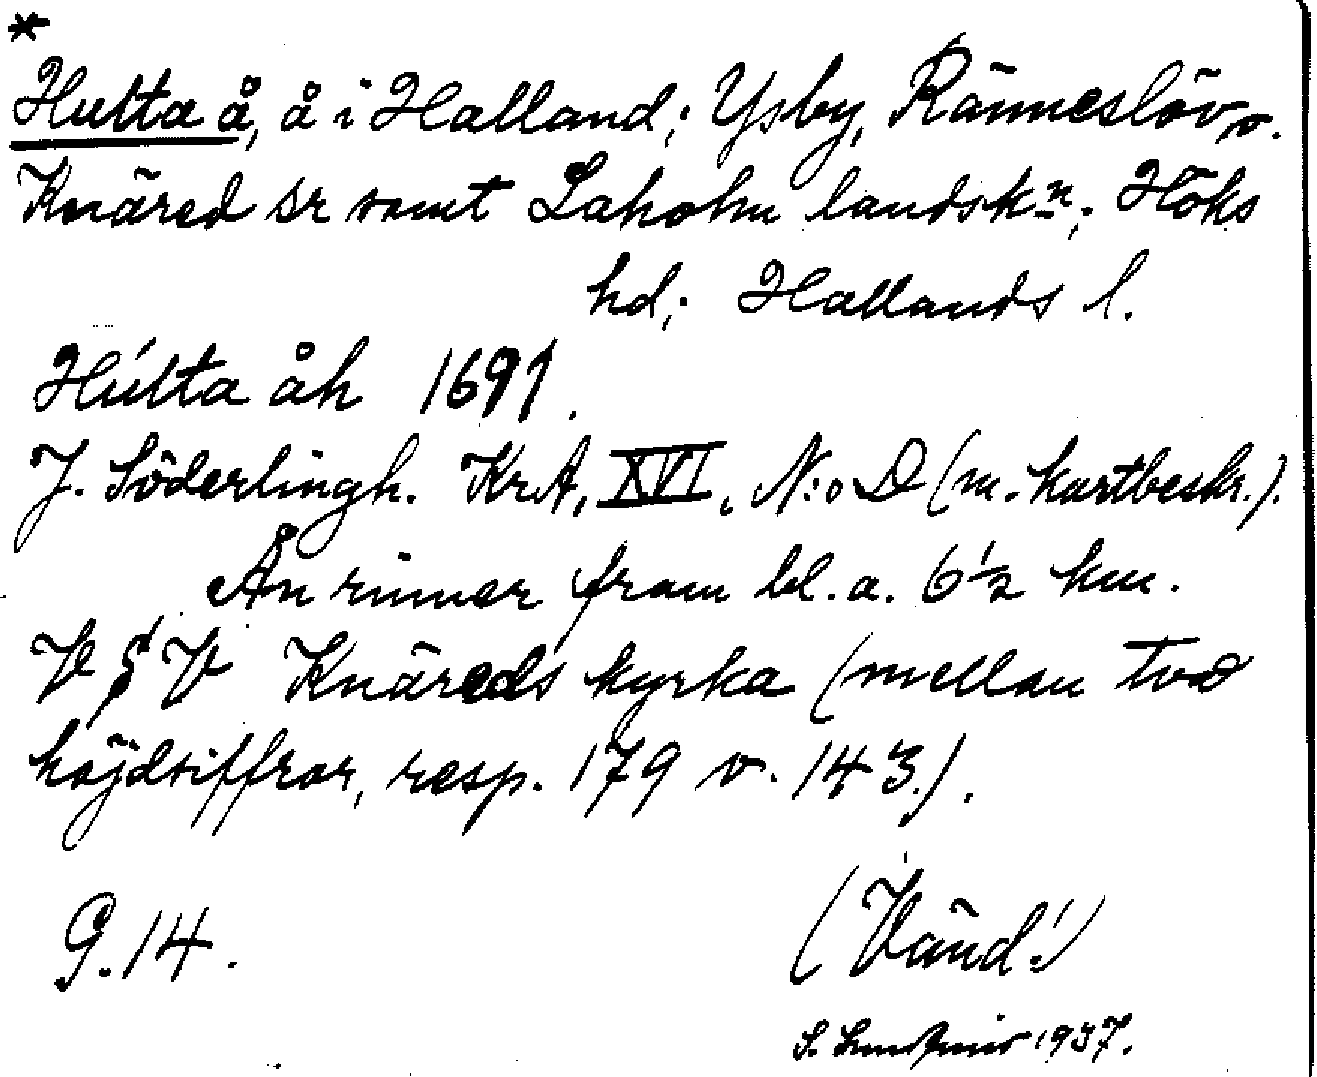 *
Hulta å, å i Halland; Ysby, Ränneslöv o.
Knäred sr samt Laholm landskn; Höks
hd; Hallands l.
Hulta åh 1691.
J. Söderlingh. KrA, XVI, N:o D (m. kartbeskr.).
Ån rinner fram bl.a. 6½ km.
V Knäreds kyrka (mellan två
höjdsiffror, resp. 179 o. 143.).
G.14.
(Vänd!)
S. 1937.